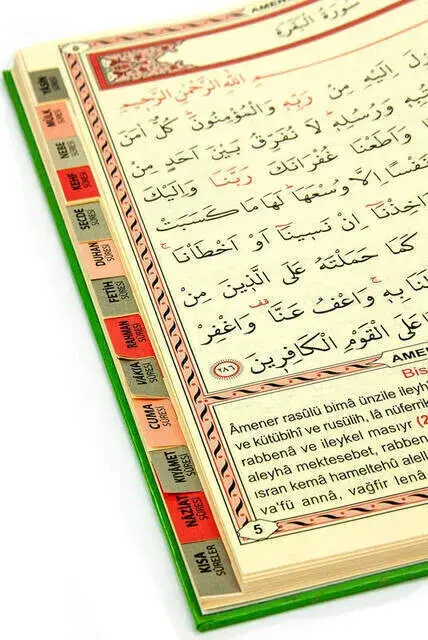 AMENER
سُورَةُ الْبَقَرَةِ
بِسْمِ اللّٰهِ الرَّحْمٰنِ الرَّحِيمِ
اِلَيْهِ مِنْ رَبِّهٖ وَالْمُؤْمِنُونَ كُلٌّ اٰمَنَ
وَرُسُلِهٖ لَا نُفَرِّقُ بَيْنَ اَحَدٍ مِنْ
وَاَطَعْنَا غُفْرَانَكَ رَبَّنَا وَاِلَيْكَ
نَفْسًا اِلَّا وُسْعَهَا لَهَا مَا كَسَبَتْ
اِنْ نَسِينَا اَوْ اَخْطَأْنَا
كَمَا حَمَلْتَهُ عَلَى الَّذِينَ مِنْ
بِهٖ وَاعْفُ عَنَّا وَاغْفِرْ
عَلَى الْقَوْمِ الْكَافِرِينَ ٢٨٦
AMENE
Bis
Âmener rasûlü bimâ ünzile ileyh
ve kütübihî ve rusülih, lâ nüferrik
rabbenâ ve ileykel masıyr (2
aleyhâ mektesebet, rabben
ısran kemâ hameltehû alell
va'fü annâ, vağfir lenâ
5
YASİN SÛRESİ
MÜLK SÛRESİ
NEBE SÛRESİ
KEHF SÛRESİ
SECDE SÛRESİ
DUHAN SÛRESİ
FETİH SÛRESİ
RAHMAN SÛRESİ
VÂKIA SÛRESİ
CUMA SÛRESİ
KIYÂMET SÛRESİ
NÂZİAT SÛRESİ
KISA SÛRELER